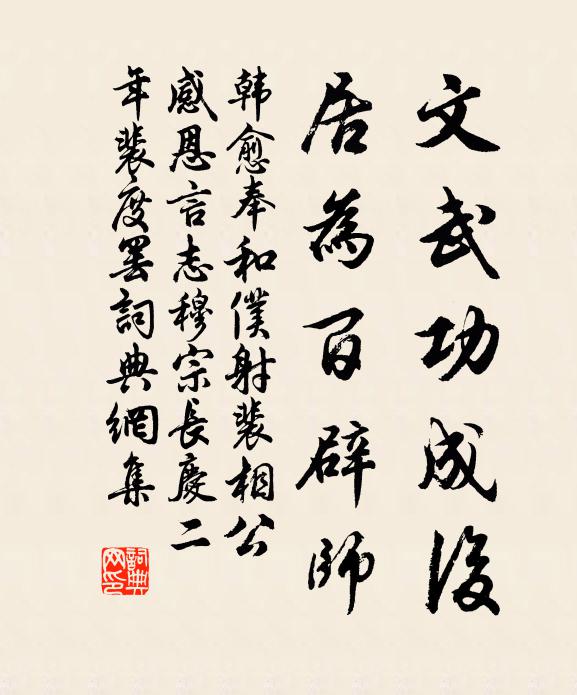 文武功成後
居為百辟師
韓愈奉和僕射裴相公
感恩言志穆宗長慶二
年裴度罢詞典網集
詞典
网印